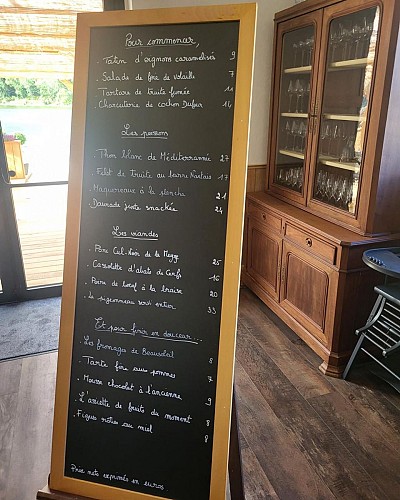 Pour commencer
Tatin d'oignons caramelisés 9
. Salade de foie de volaille 7
. Tartare de truite fumée 11
. Charcuterie de cochon Dufour 14
Les poissons
. Thon blanc de Méditerrannée 27
. Filet de truite au beurre 17
. Maquereaux à la plancha 21
. Daurade juste snackée 24
Les viandes
. Porc Cul-Noir de la 25
. Cassolette d'abats de 16
. Poire de bœuf à la braise 20
. Le pigeonneau servi entier 33
Et pour finir en douceur...
. Les fromages de Beausoleil 8
. Tarte fine aux pommes 7
. Mousse chocolat à l'ancienne 9
. L'assiette de fruits du moment 8
. Figues rôties au miel 8
Prix nets exprimés en euros